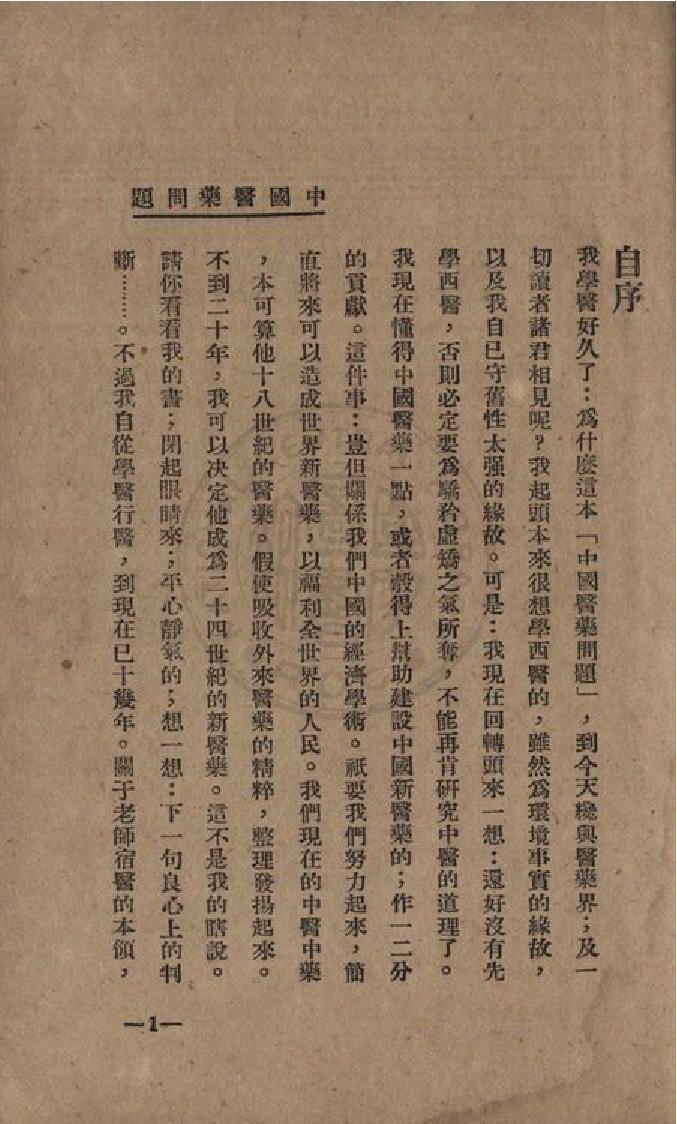 中國醫藥問題
自序
我學醫好久了：爲什麽這本「中國醫藥問題」，到今天纔與醫藥界；及一
切讀者諸君相見呢？我起頭本來很想學西醫的，雖然爲環境事實的緣故，
以及我自己守舊性太强的緣故。可是：我現在回轉頭來一想：還好沒有先
學西醫，否則必定要爲驕矜虛矯之氣所奪，不能再肯研究中醫的道理了。
我現在懂得中國醫藥一點，或者彀得上幫助建設中國新醫藥的；作一二分
的貢獻。這件事：豈但關係我們中國的經濟學術。祇要我們努力起來，簡
直將來可以造成世界新醫藥，以福利全世界的人民。我們現在的中醫中藥
，本可算他十八世紀的醫藥。假使吸收外來醫藥的精粹，整理發揚起來。
不到二十年，我可以决定他成爲二十四世紀的新醫藥。這不是我的瞎說。
請你看看我的書；閉起眼睛來；平心靜氣的；想一想：下一句良心上的判
斷………。不過我自從學醫行醫，到現在已十幾年。關于老師宿醫的本領，
—1—